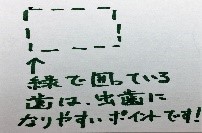 ↑
緑で囲っている
歯は、出歯に
なりやすいポイントです!